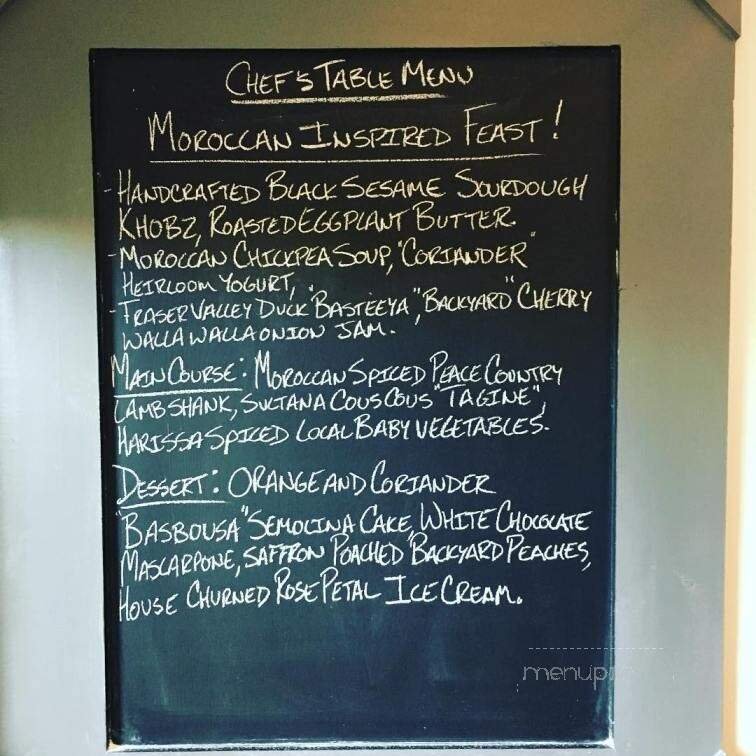 CHEF'S TABLE MENU
MOROCCAN INSPIRED FEAST!
-HANDCRAFTED BLACK SESAME SOURDOUGH
KHOBZ, ROASTED EGGPLANT BUTTER.
-MOROCCAN CHICKPEA SOUP, "CORIANDER"
HEIRLOOM YOGURT,
-FRASER VALLEY DUCK "BASTEEYA", "BACKYARD" CHERRY
WALLA WALLA ONION JAM.
MAIN COURSE: MOROCCAN SPICED PEACE COUNTRY
LAMB SHANK, SULTANA COUS COUS "TAGINE",
HARISSA SPICED LOCAL BABY VEGETABLES.
DESSERT: ORANGE AND CORIANDER
"BASBOUSA" SEMOLINA CAKE, WHITE CHOCOLATE
MASCARPONE, SAFFRON POACHED "BACKYARD PEACHES,
HOUSE CHURNED ROSE PETAL ICE CREAM.